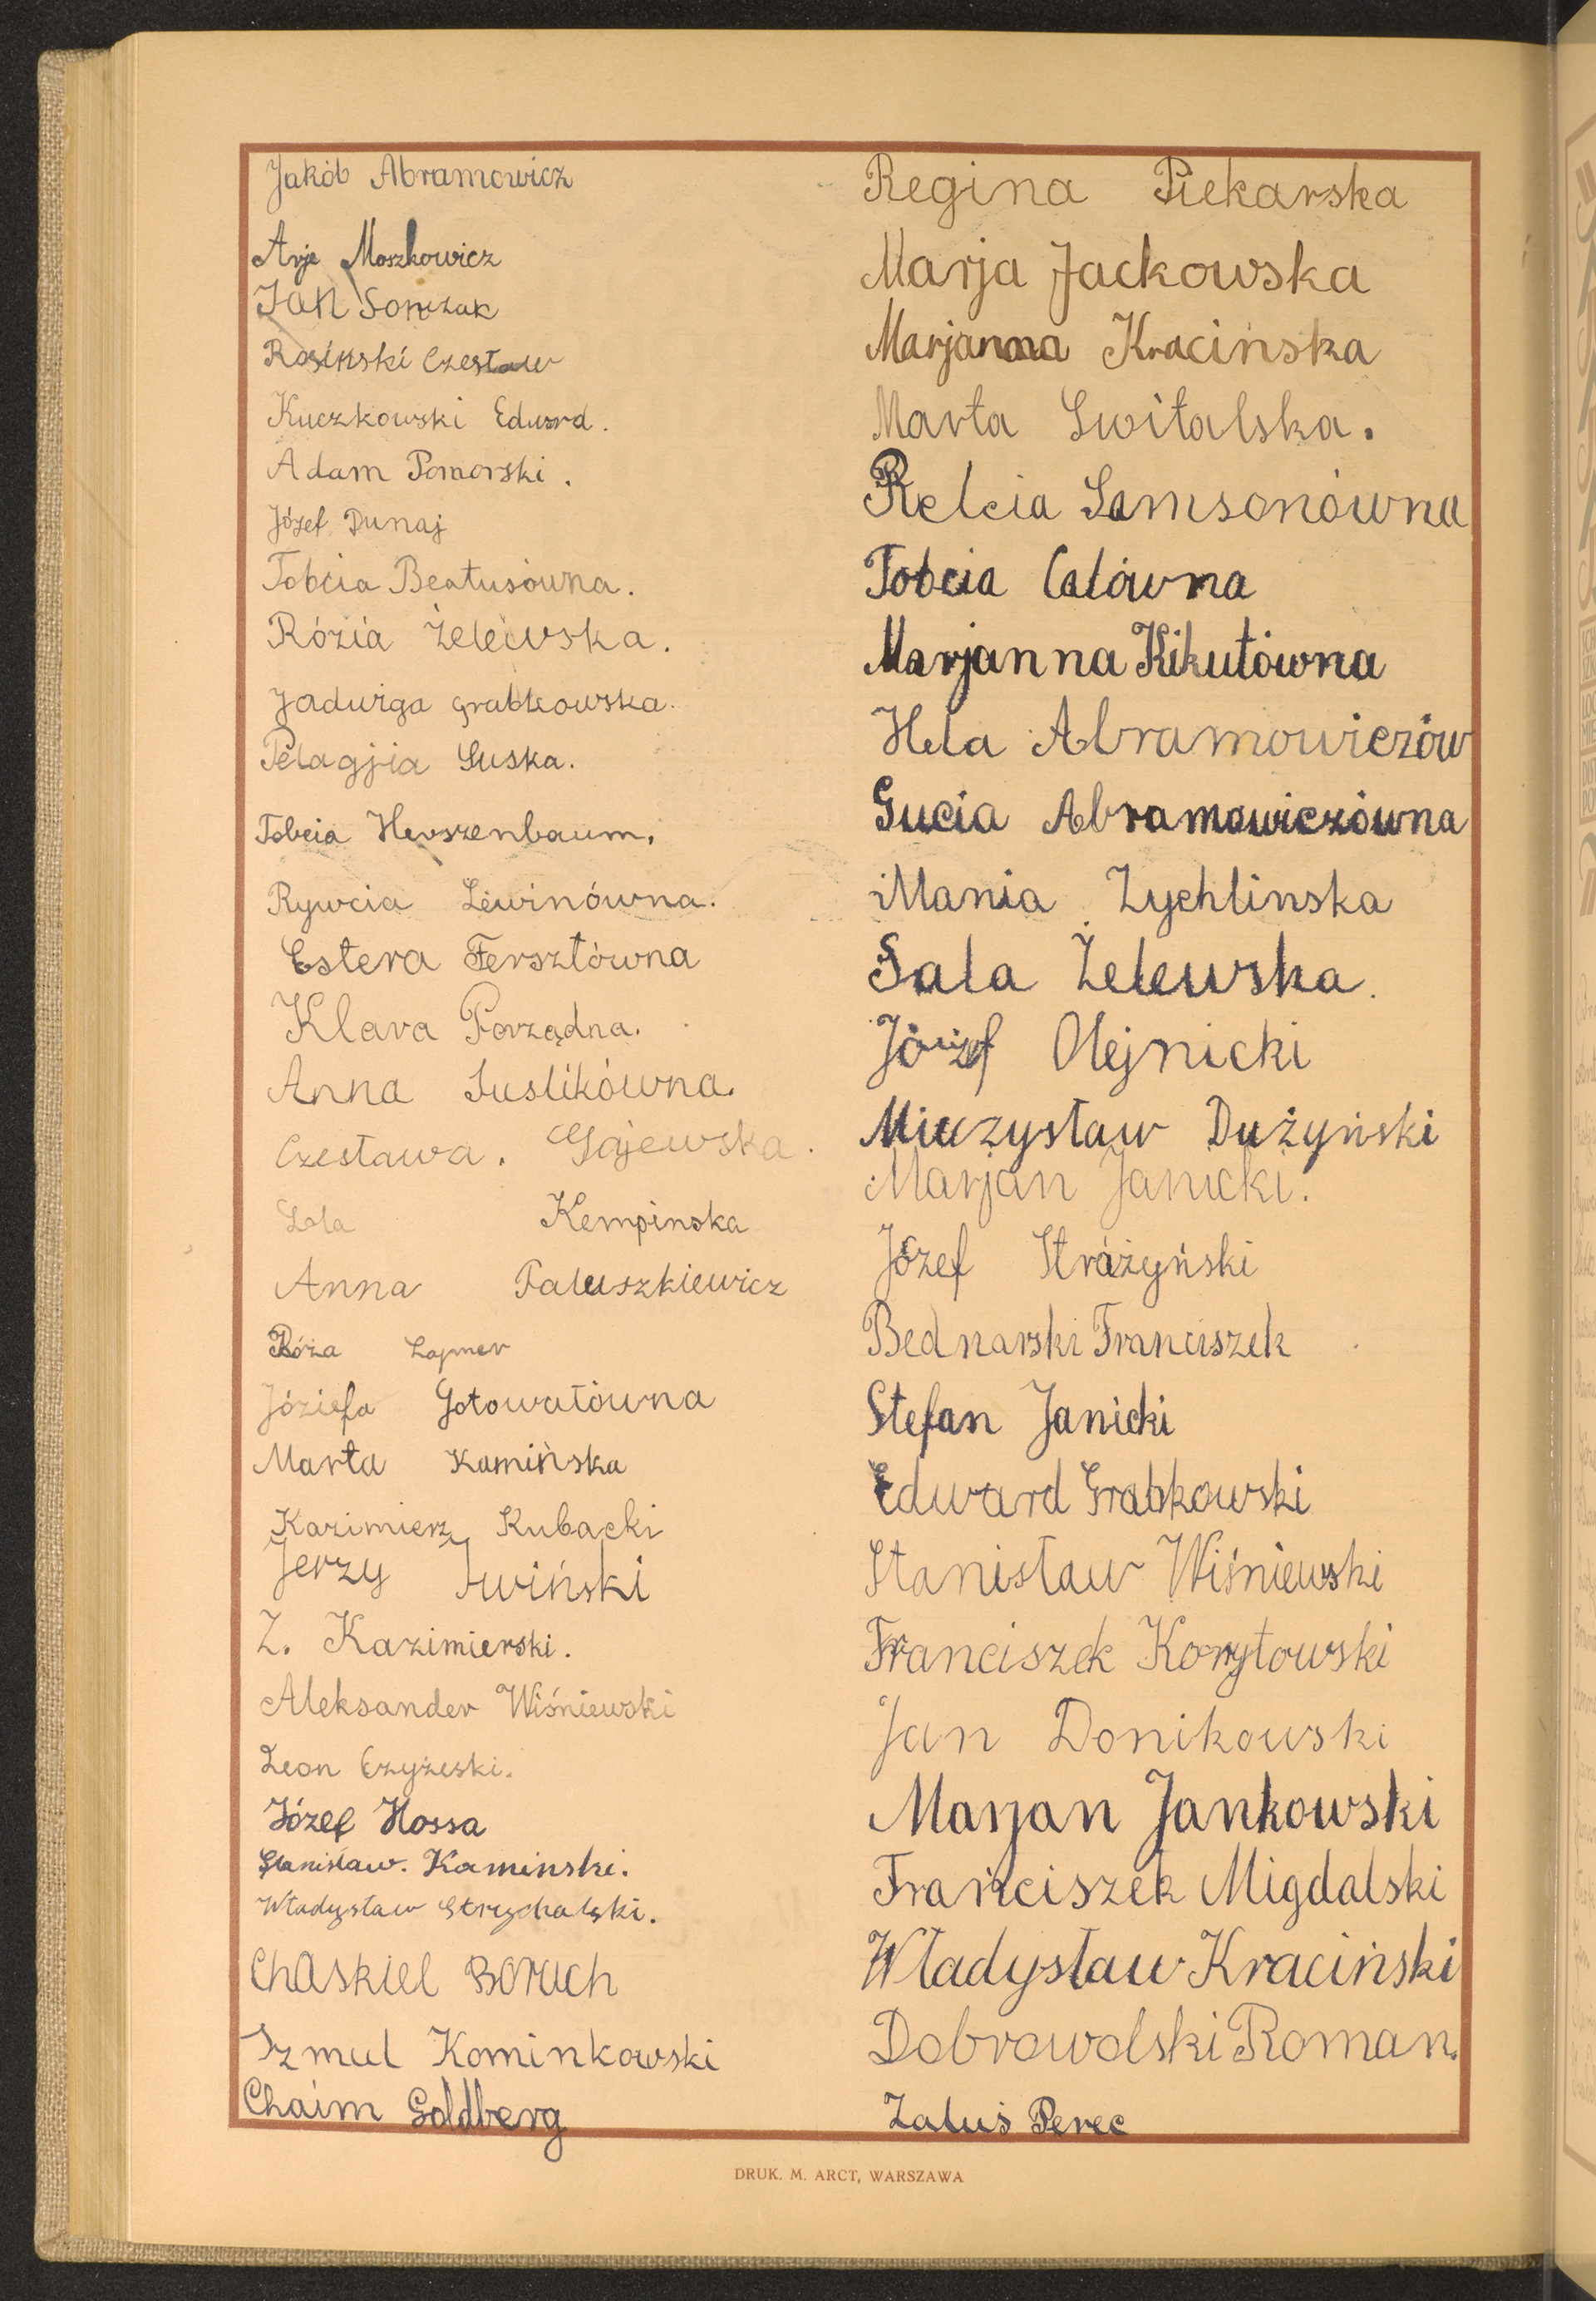 Jakób Abramowicz
Arje Moszkowicz
JAN Sowczak
Rosiński Czesław
Kuczkowski Eduard.
Adam Pomorski.
Józef Dunaj
Tobcia Beatusówna.
Rózia Żelewska.
Jadwiga Grabkowska.
Pelagjia Suska.
Tobcia Herszenbaum.
Rywcia Lewinówna.
Estera Fersztówna
Klara Porządna.
Anna Suslikówna.
Czesława. Gajewska.
Lola Kempinska
Anna Paluszkiewicz
Róża Lajmer
Józiefa Gotowałówna
Marta Kamińska
Kazimierz Kubacki
Jerzy Iwiński
Z. Kazimierski.
Aleksander Wiśniewski
Leon Czyżeski.
Józef Hossa
Stanisław. Kaminski.
Władysław Strychalski.
Chaskiel Boruch
Szmul Kominkowski
Chaim Goldberg
Regina Piekarska
Marja Jackowska
Marjanna Kracińska
Marta Switalska.
Relcia Samsonówna
Tobcia Calówna
Marjanna Kikutówna
Hela Abramowiczów
Gucia Abramowiczówna
Mania Zychlinska
Sala Żelewska.
Józef Olejnicki
Mieczysław Dużyński
Marjan Janicki.
Józef Strażyński
Bednarski Franciszek
Stefan Janicki
Edward Grabkowski
Stanisław Wiśniewski
Franciszek Korytowski
Jan Donikowski
Marjan Jankowski
Franciszek Migdalski
Władysław Kraciński
Dobrowolski Roman.
Zaluś Perec
DRUK. M. ARCT, WARSZAWA